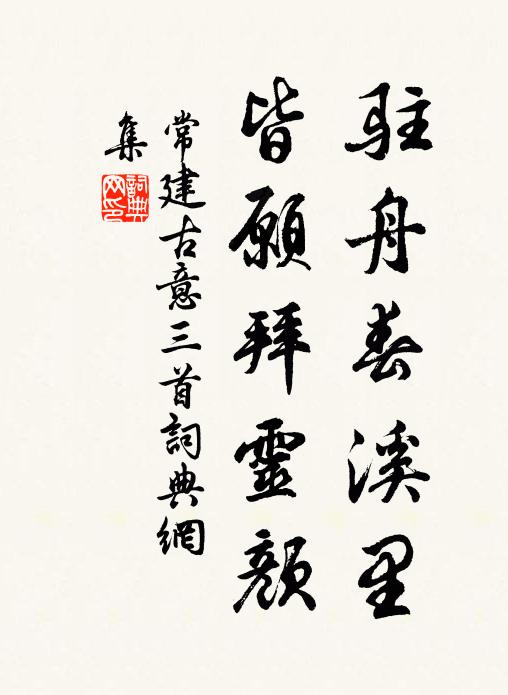 駐舟春溪里
皆願拜靈顏
常建古意三首詞典網
集
詞典
网印